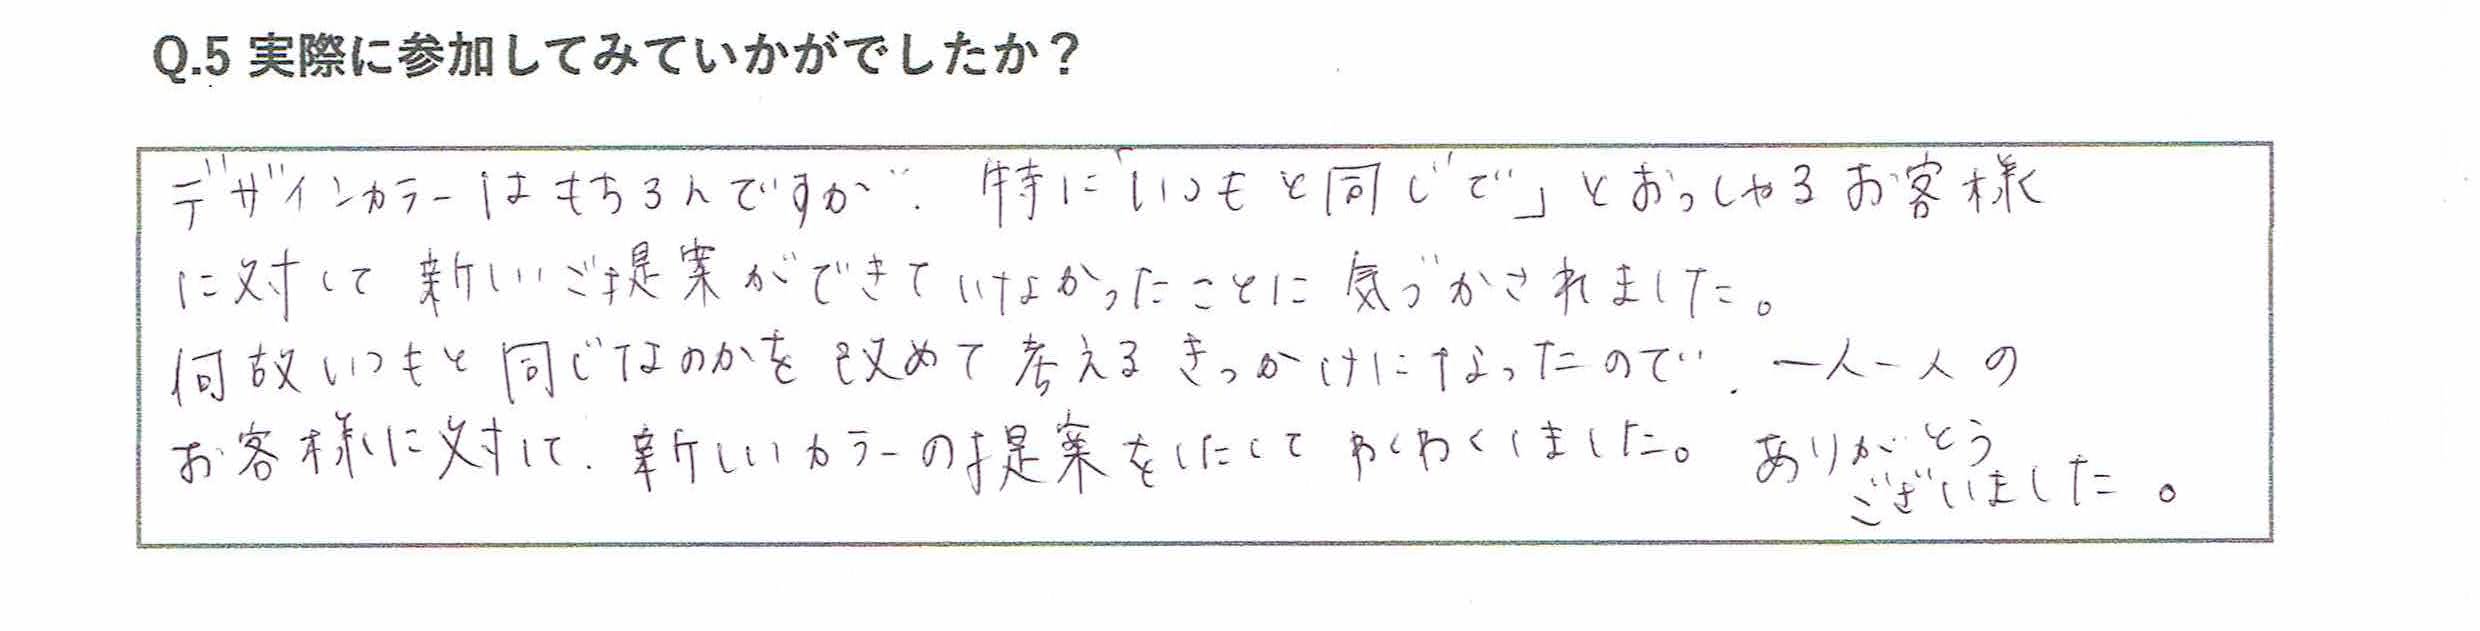 Q.5 実際に参加してみていかがでしたか？
デザインカラーはもちろんですが、特に「いつもと同じで」とおっしゃるお客様
に対して新しいご提案ができていなかったことに気づかされました。
何故いつもと同じなのかを改めて考えるきっかけになったので、一人一人の
お客様に対して、新しいカラーの提案をしたくてわくわくしました。ありがとう
ございました。